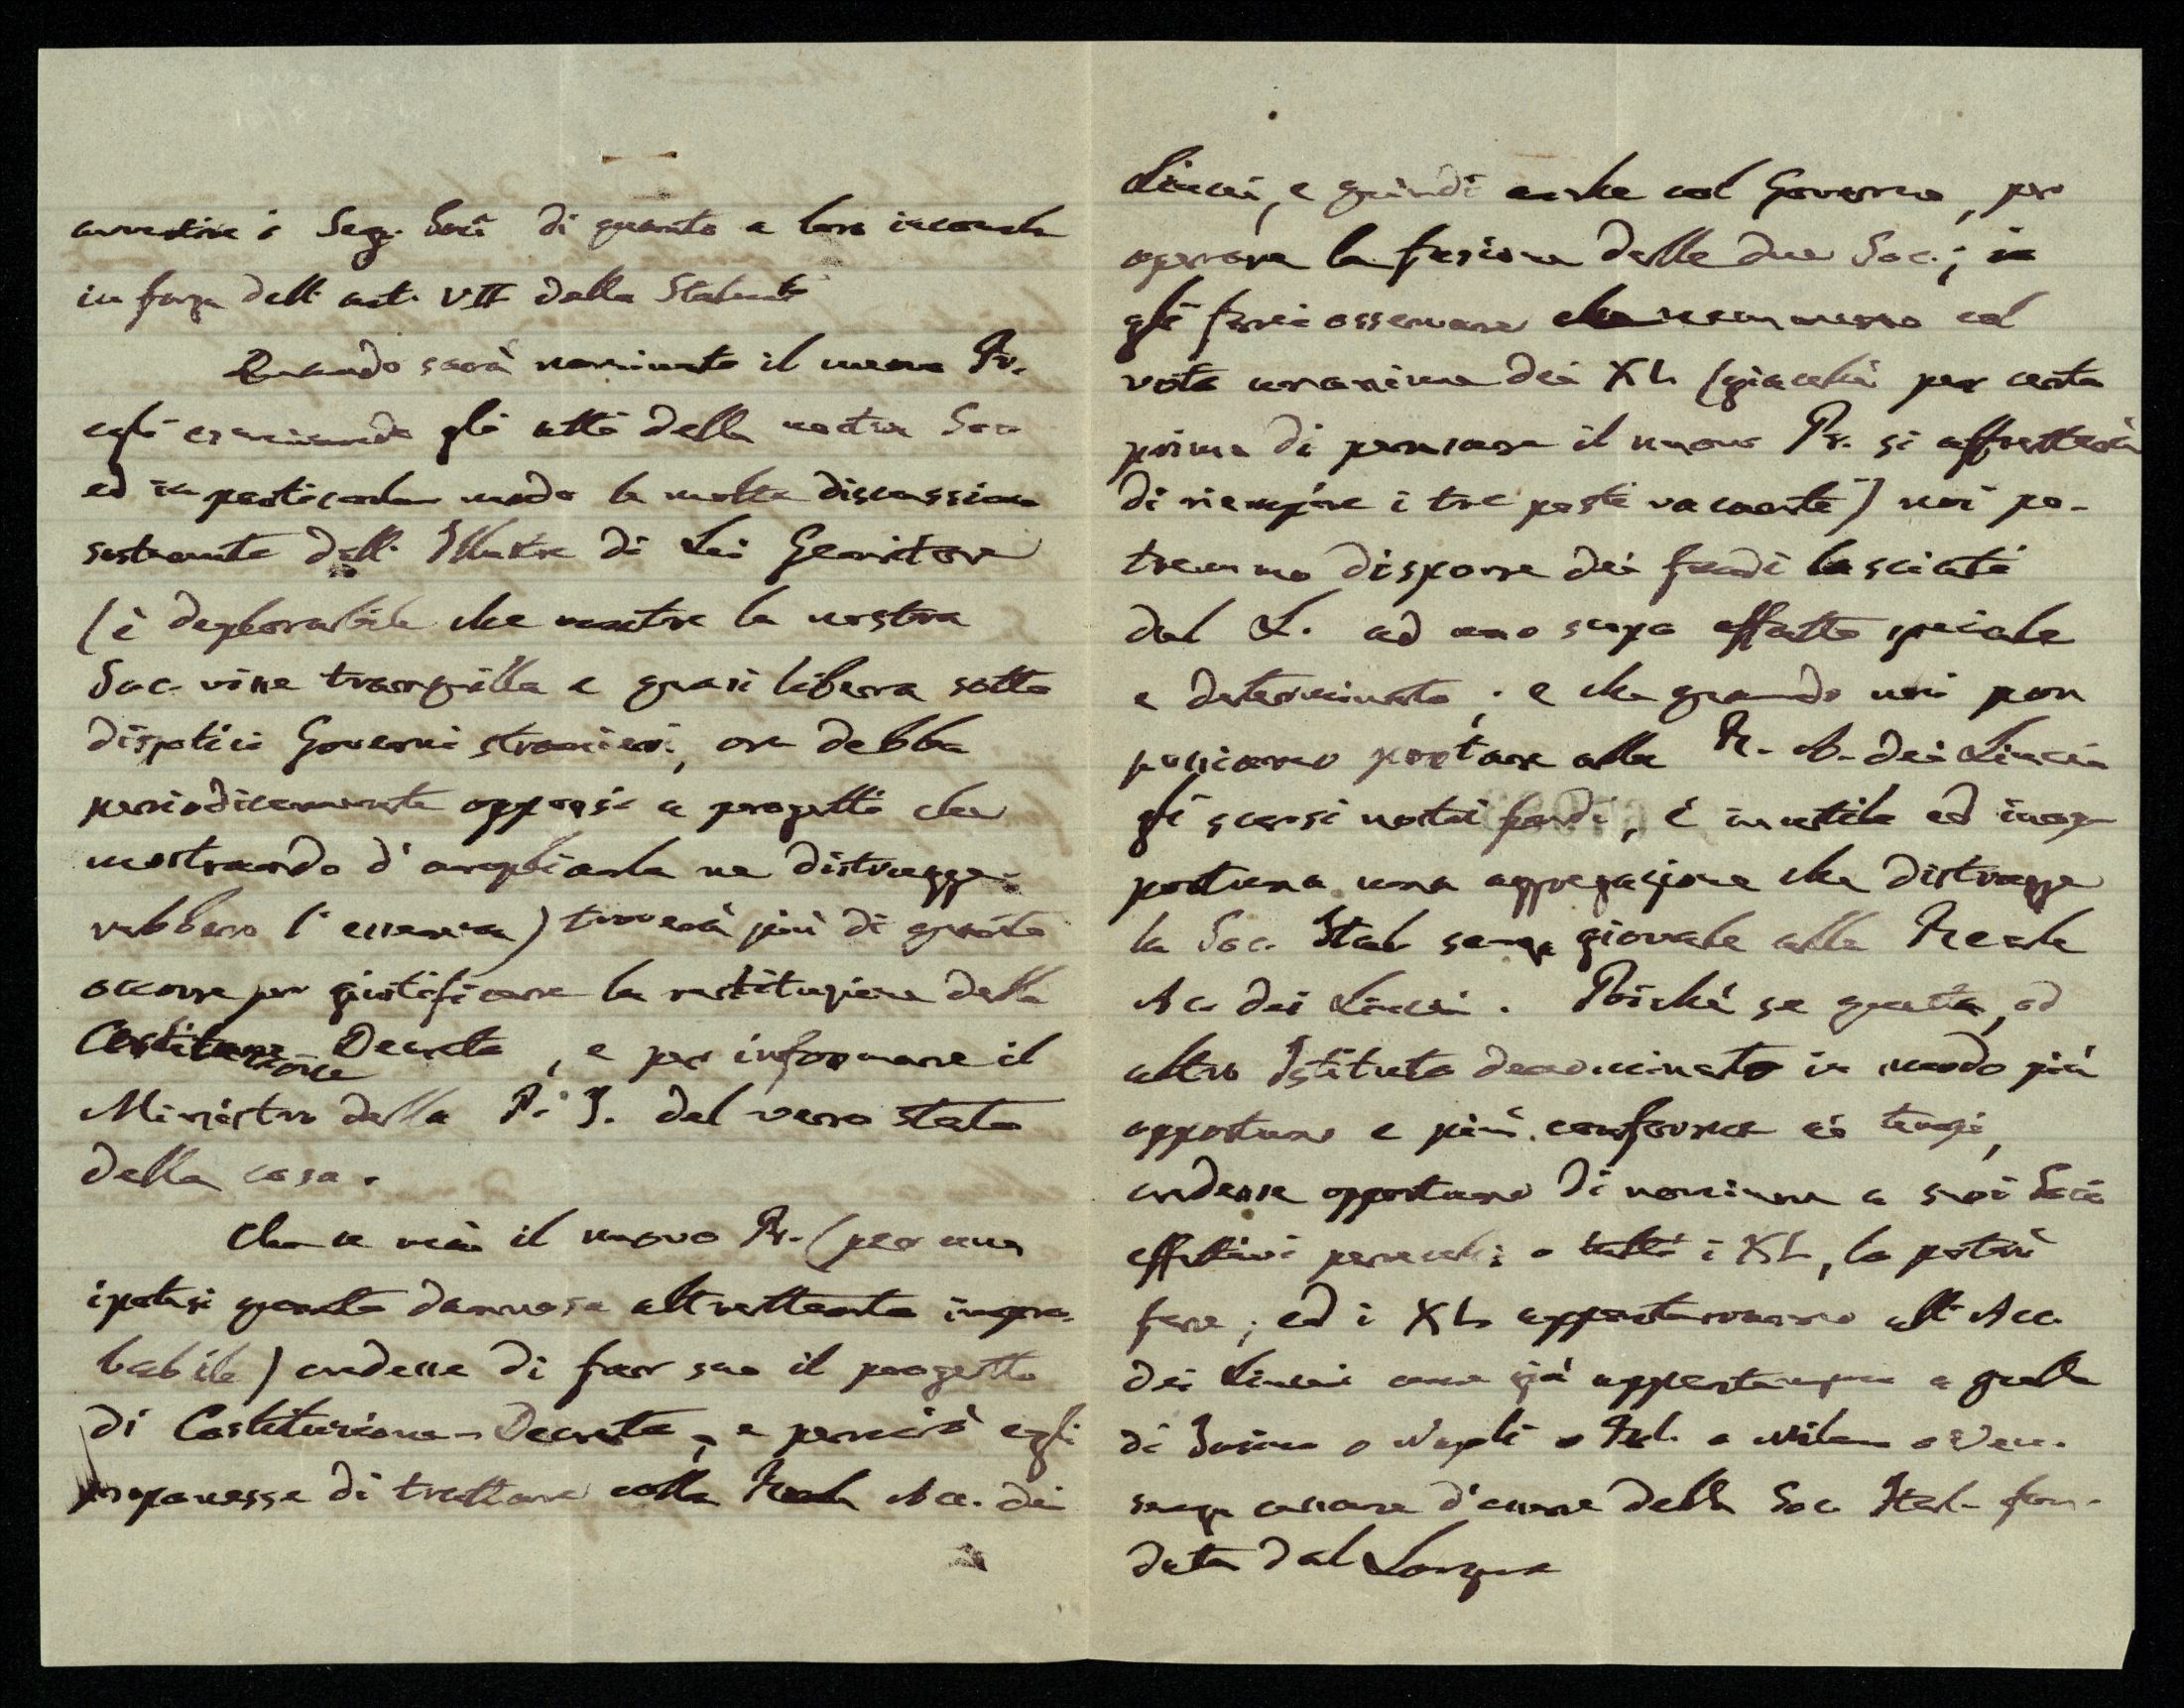 avvertire i Seg. Soci di quanto a loro incombe
in forza dell'art. VII dello Statuto
Quando sarà nominato il nuovo Pr.
egli esaminando gli atti della nostra Soc
ed in particolar modo la molta discussione
sostenuta dall'Illustre di Lei Genitore
(è deplorabile che mentre la nostra
Soc. visse tranquilla e quasi libera sotto
dispotici Governi stranieri, ora debba
periodicamente opporsi a progetti che
mostrando d'ampliarla ne distrugge-
rebbero l'essenza) troverà più di quanto
occorre per giustificare la restituzione della
Costituzione Decreto, e per informare il
Ministro della P. I. del vero stato
della cosa.
Che se mai il nuovo Pr. (per una
ipotesi quanto dannosa altrettanto impro-
babile) credesse di far suo il progetto
di Costituzione-Decreto, e perciò egli
proponesse di trattare colla Reale Acc. dei
Lincei, e quindi anche col Governo, per
operare la fusione delle due Soc.; io
gli farei osservare che nemmeno col
voto unanime dei XL (giacchè per certo
prima di pensare il nuovo Pr. si affretterà
di riempire i tre posti vacanti) noi po-
tremmo disporre dei fondi lasciati
dal L. ad uno scopo affatto speciale
e determinato; e che quando noi non
possiamo portare alla R. A. dei Lincei
gli scarsi nostri fondi, è inutile ed inop-
portuna una aggregazione che distrugge
la Soc. Ital. senza giovare alla Reale
Ac. dei Lincei. Poichè se questa, od
altro Istituto denominato in modo più
opportuno e più conforme ai tempi,
credesse opportuno di nominare a suoi Soci
effettivi parecchi o tutti i XL, lo potrà
fare; ed i XL apparterranno all'Acc.
dei Lincei come già appartengono a quelle
di Torino o Napoli o Bol. o Milano o Ven.
senza cessare d'essere della Soc. Ital. fon-
data dal Lorgna